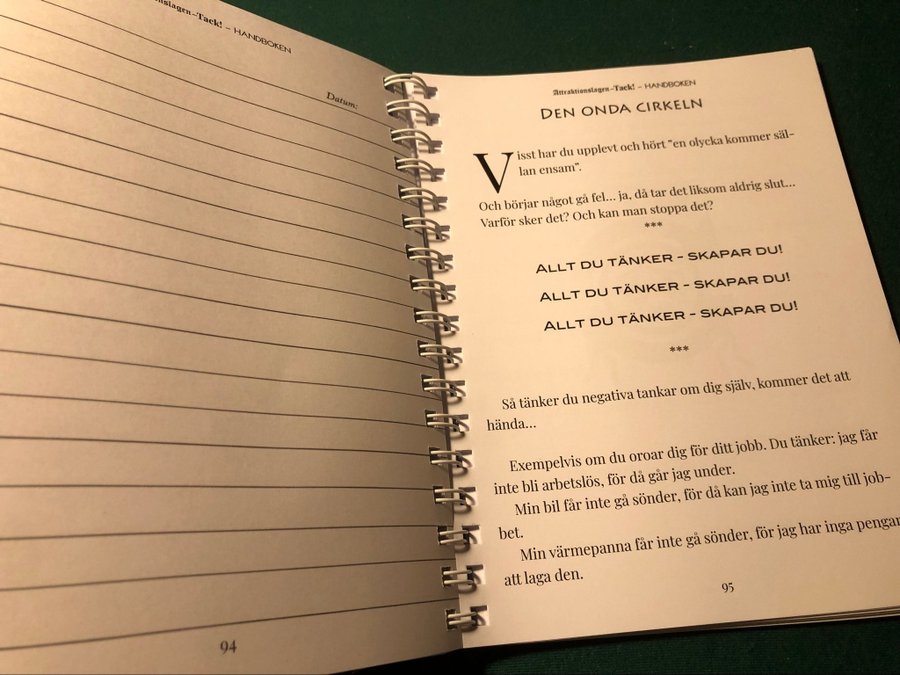 Tack! – HANDBOKEN
Datum:
94
Attraktionslagen–Tack! – HANDBOKEN
DEN ONDA CIRKELN
Visst har du upplevt och hört "en olycka kommer säl-
lan ensam".
Och börjar något gå fel... ja, då tar det liksom aldrig slut...
Varför sker det? Och kan man stoppa det?
***
ALLT DU TÄNKER - SKAPAR DU!
ALLT DU TÄNKER - SKAPAR DU!
ALLT DU TÄNKER - SKAPAR DU!
***
Så tänker du negativa tankar om dig själv, kommer det att
hända...
Exempelvis om du oroar dig för ditt jobb. Du tänker: jag får
inte bli arbetslös, för då går jag under.
Min bil får inte gå sönder, för då kan jag inte ta mig till job-
bet.
Min värmepanna får inte gå sönder, för jag har inga pengar
att laga den.
95